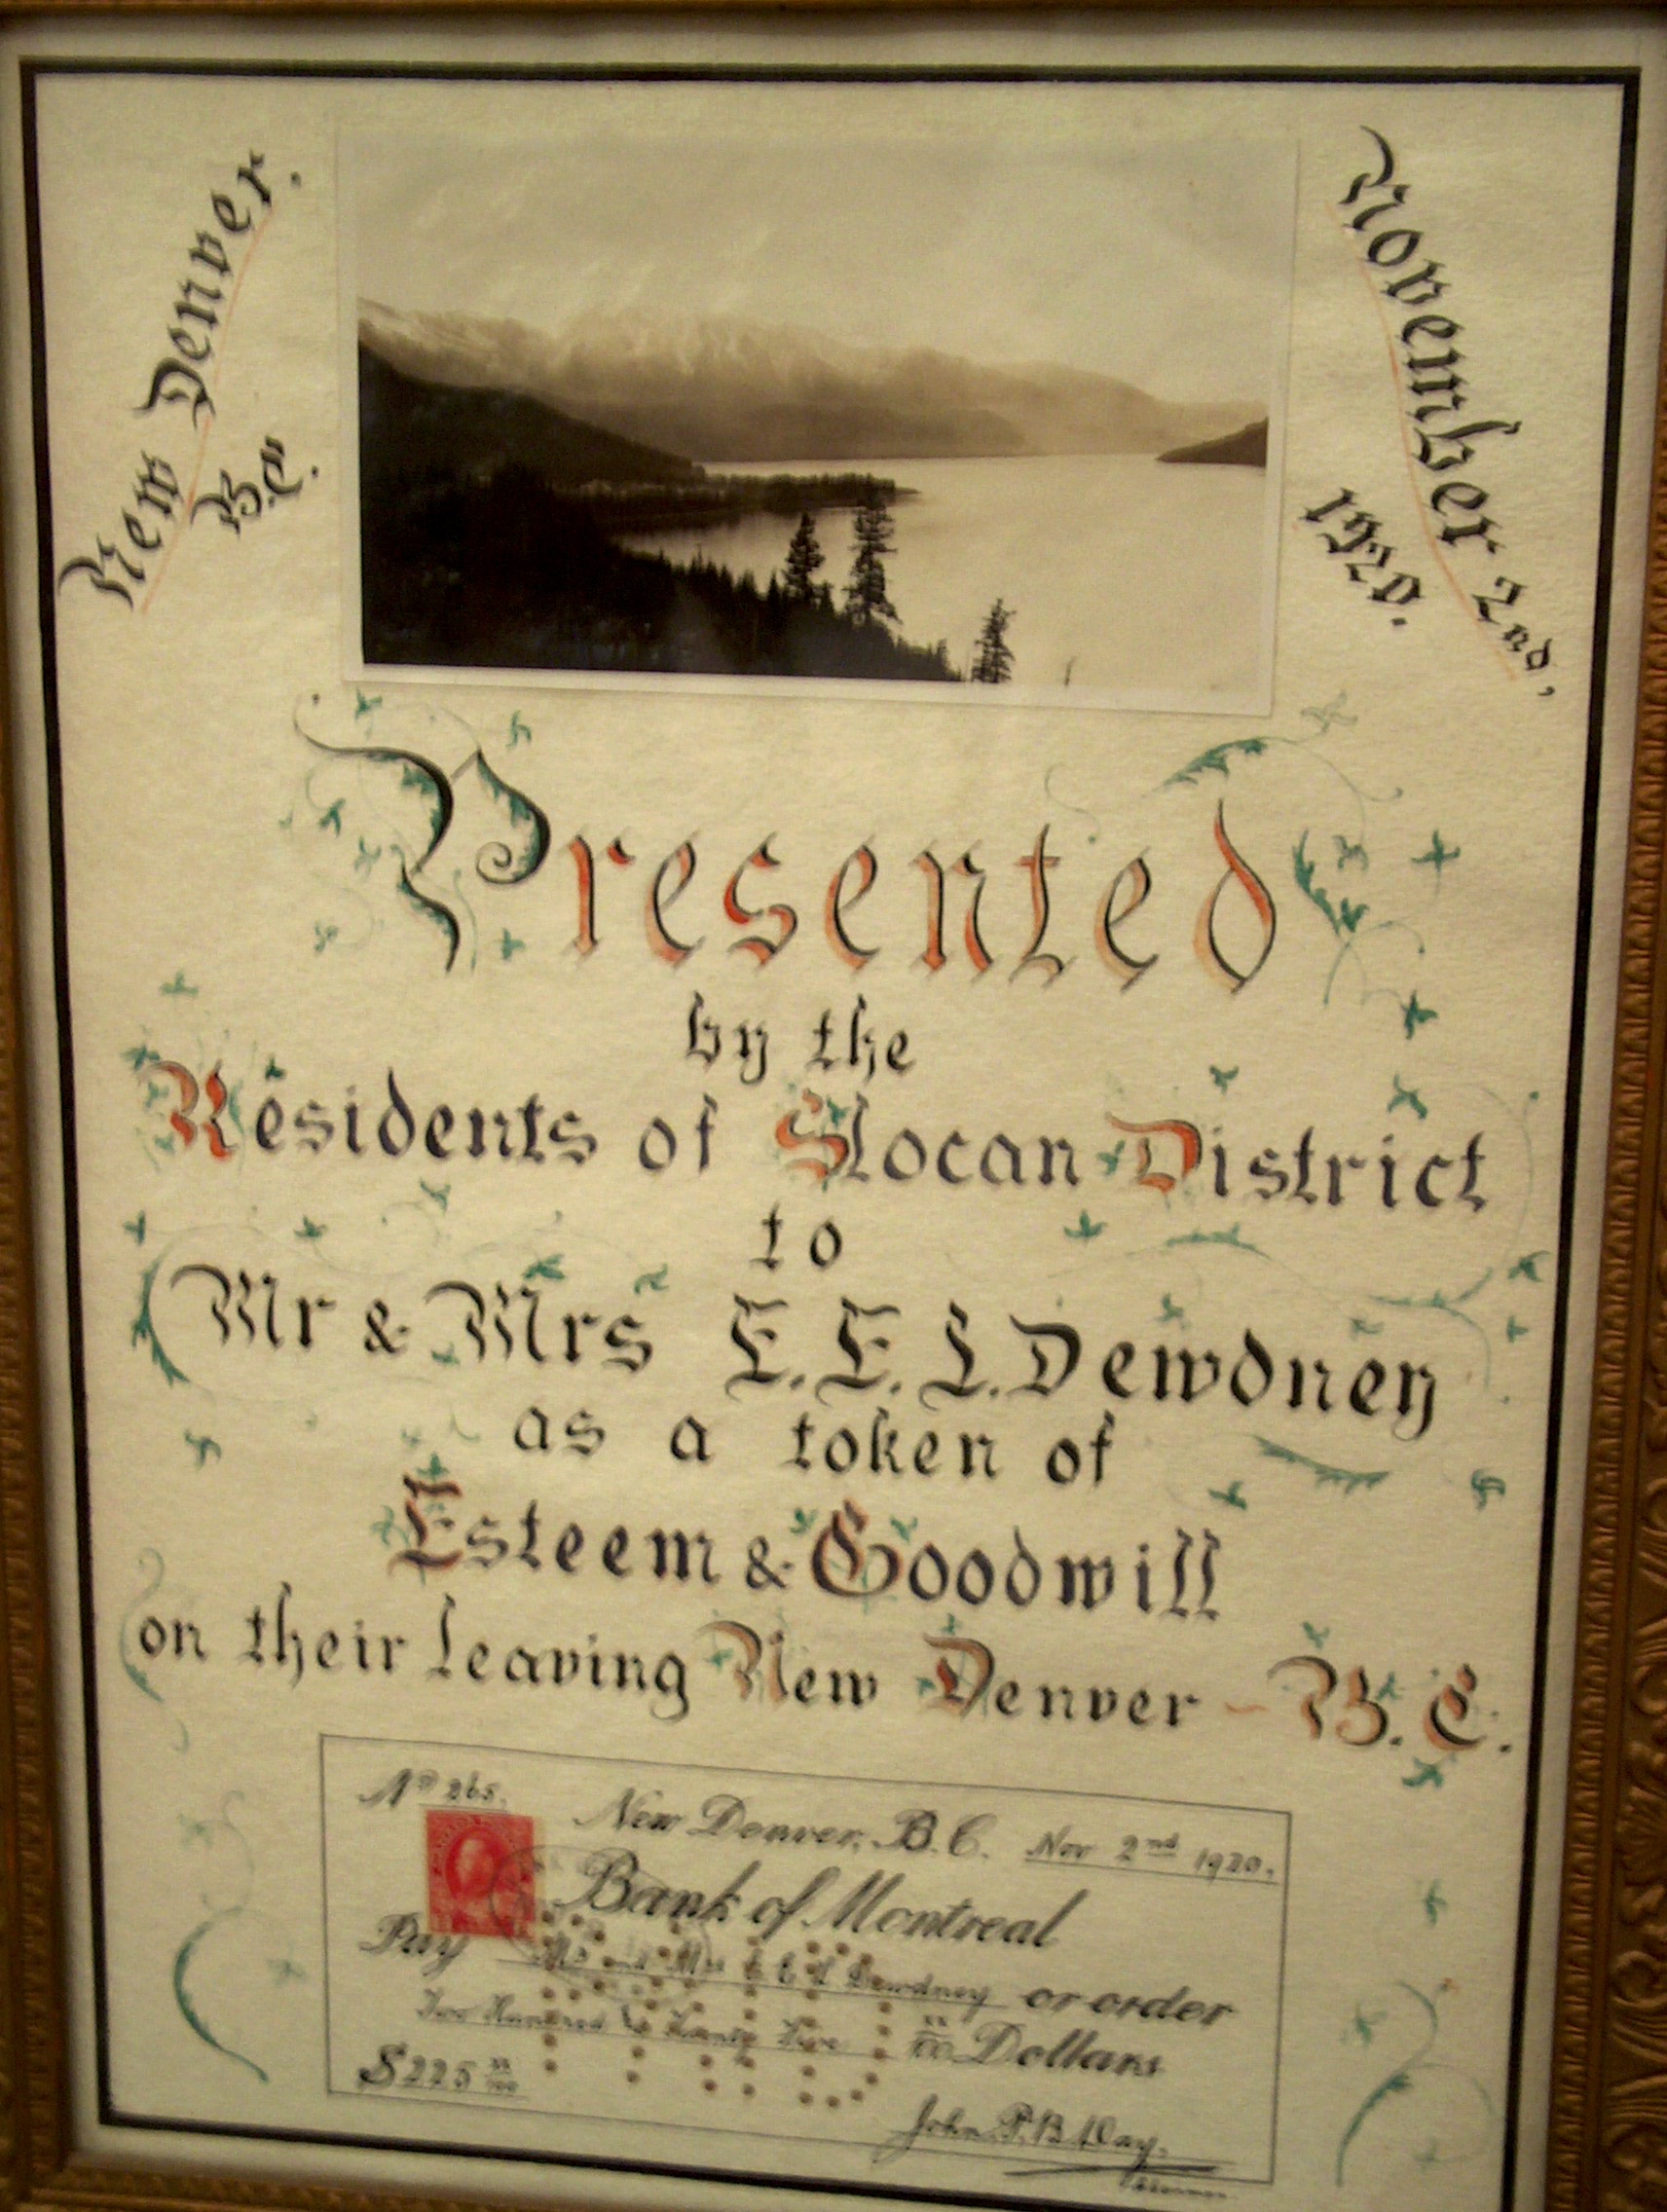 New Denver.
B.C.
November 2nd,
1920.
Presented
by the
Residents of Slocan District
to
Mr & Mrs E. E. L. Dewdney
as a token of
Esteem & Goodwill
on their leaving New Denver - B.C.
No 265.
New Denver, B.C. Nov 2nd 1920.
Bank of Montreal
Pay Mr and Mrs E E L Dewdney or order
Two Hundred & Twenty Five xx/100 Dollars
$225 xx/100
PAID